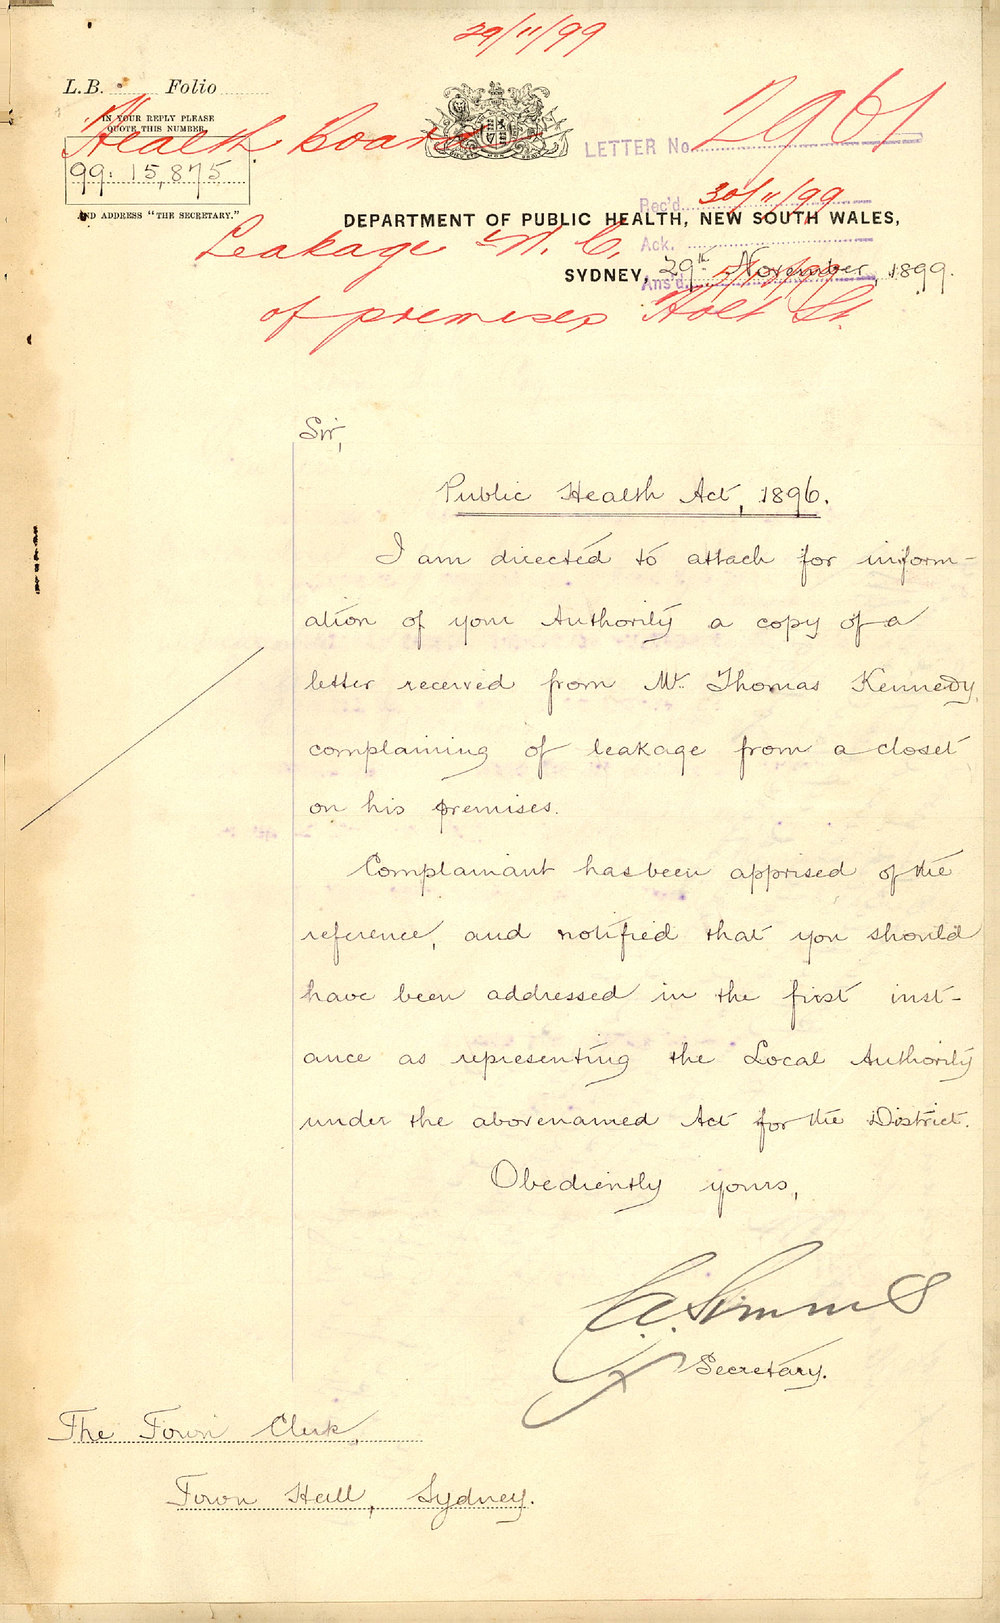 29/11/99
L.B. Folio
IN YOUR REPLY PLEASE
QUOTE THIS NUMBER.
99: 15,875
AND ADDRESS "THE SECRETARY."
Health Board
LETTER No. 2961
Rec'd. 30/11/99
DEPARTMENT OF PUBLIC HEALTH, NEW SOUTH WALES,
Ack.
Leakage W. C.
SYDNEY, 29th November, 1899.
Ans'd.
of premises Holt St.
Sir,
Public Health Act, 1896.
I am directed to attach for inform-
ation of your Authority a copy of a
letter received from Mr. Thomas Kennedy,
complaining of leakage from a closet
on his premises.
Complainant has been apprised of the
reference, and notified that you should
have been addressed in the first inst-
ance as representing the Local Authority
under the abovenamed Act for the District.
Obediently yours,
Simms
Secretary.
The Town Clerk,
Town Hall, Sydney.